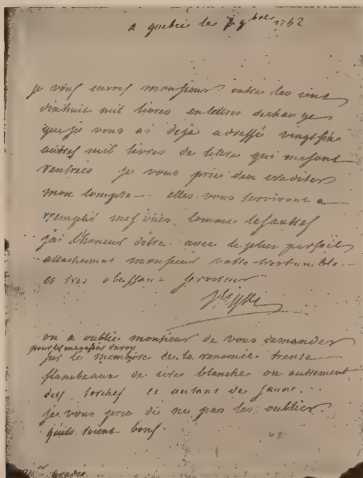 a quebec les 7 9bre 1752
je vous envois monsieur outre les cent
dixhuit mil livres en lettres dechange
que je vous ai dejà adressé vingt six
autres mil livres de lettre qui me sont
rentrées je vous prie den crediter
mon compte elles vous serviront a
remplir mes vües comme les autres
jai lhonneur detre avec le plus parfait
attachement monsieur votre tres humble
et tres obeissant serviteur
Bigot
on a oublié monsieur de vous demander
pour les magasins du roy
sur le memoire de la renomée trente
flambeaux de cire blanche ou autrement
dit torches et autant de jaune
je vous prie de ne pas les oublier
quils soient bons
gradis